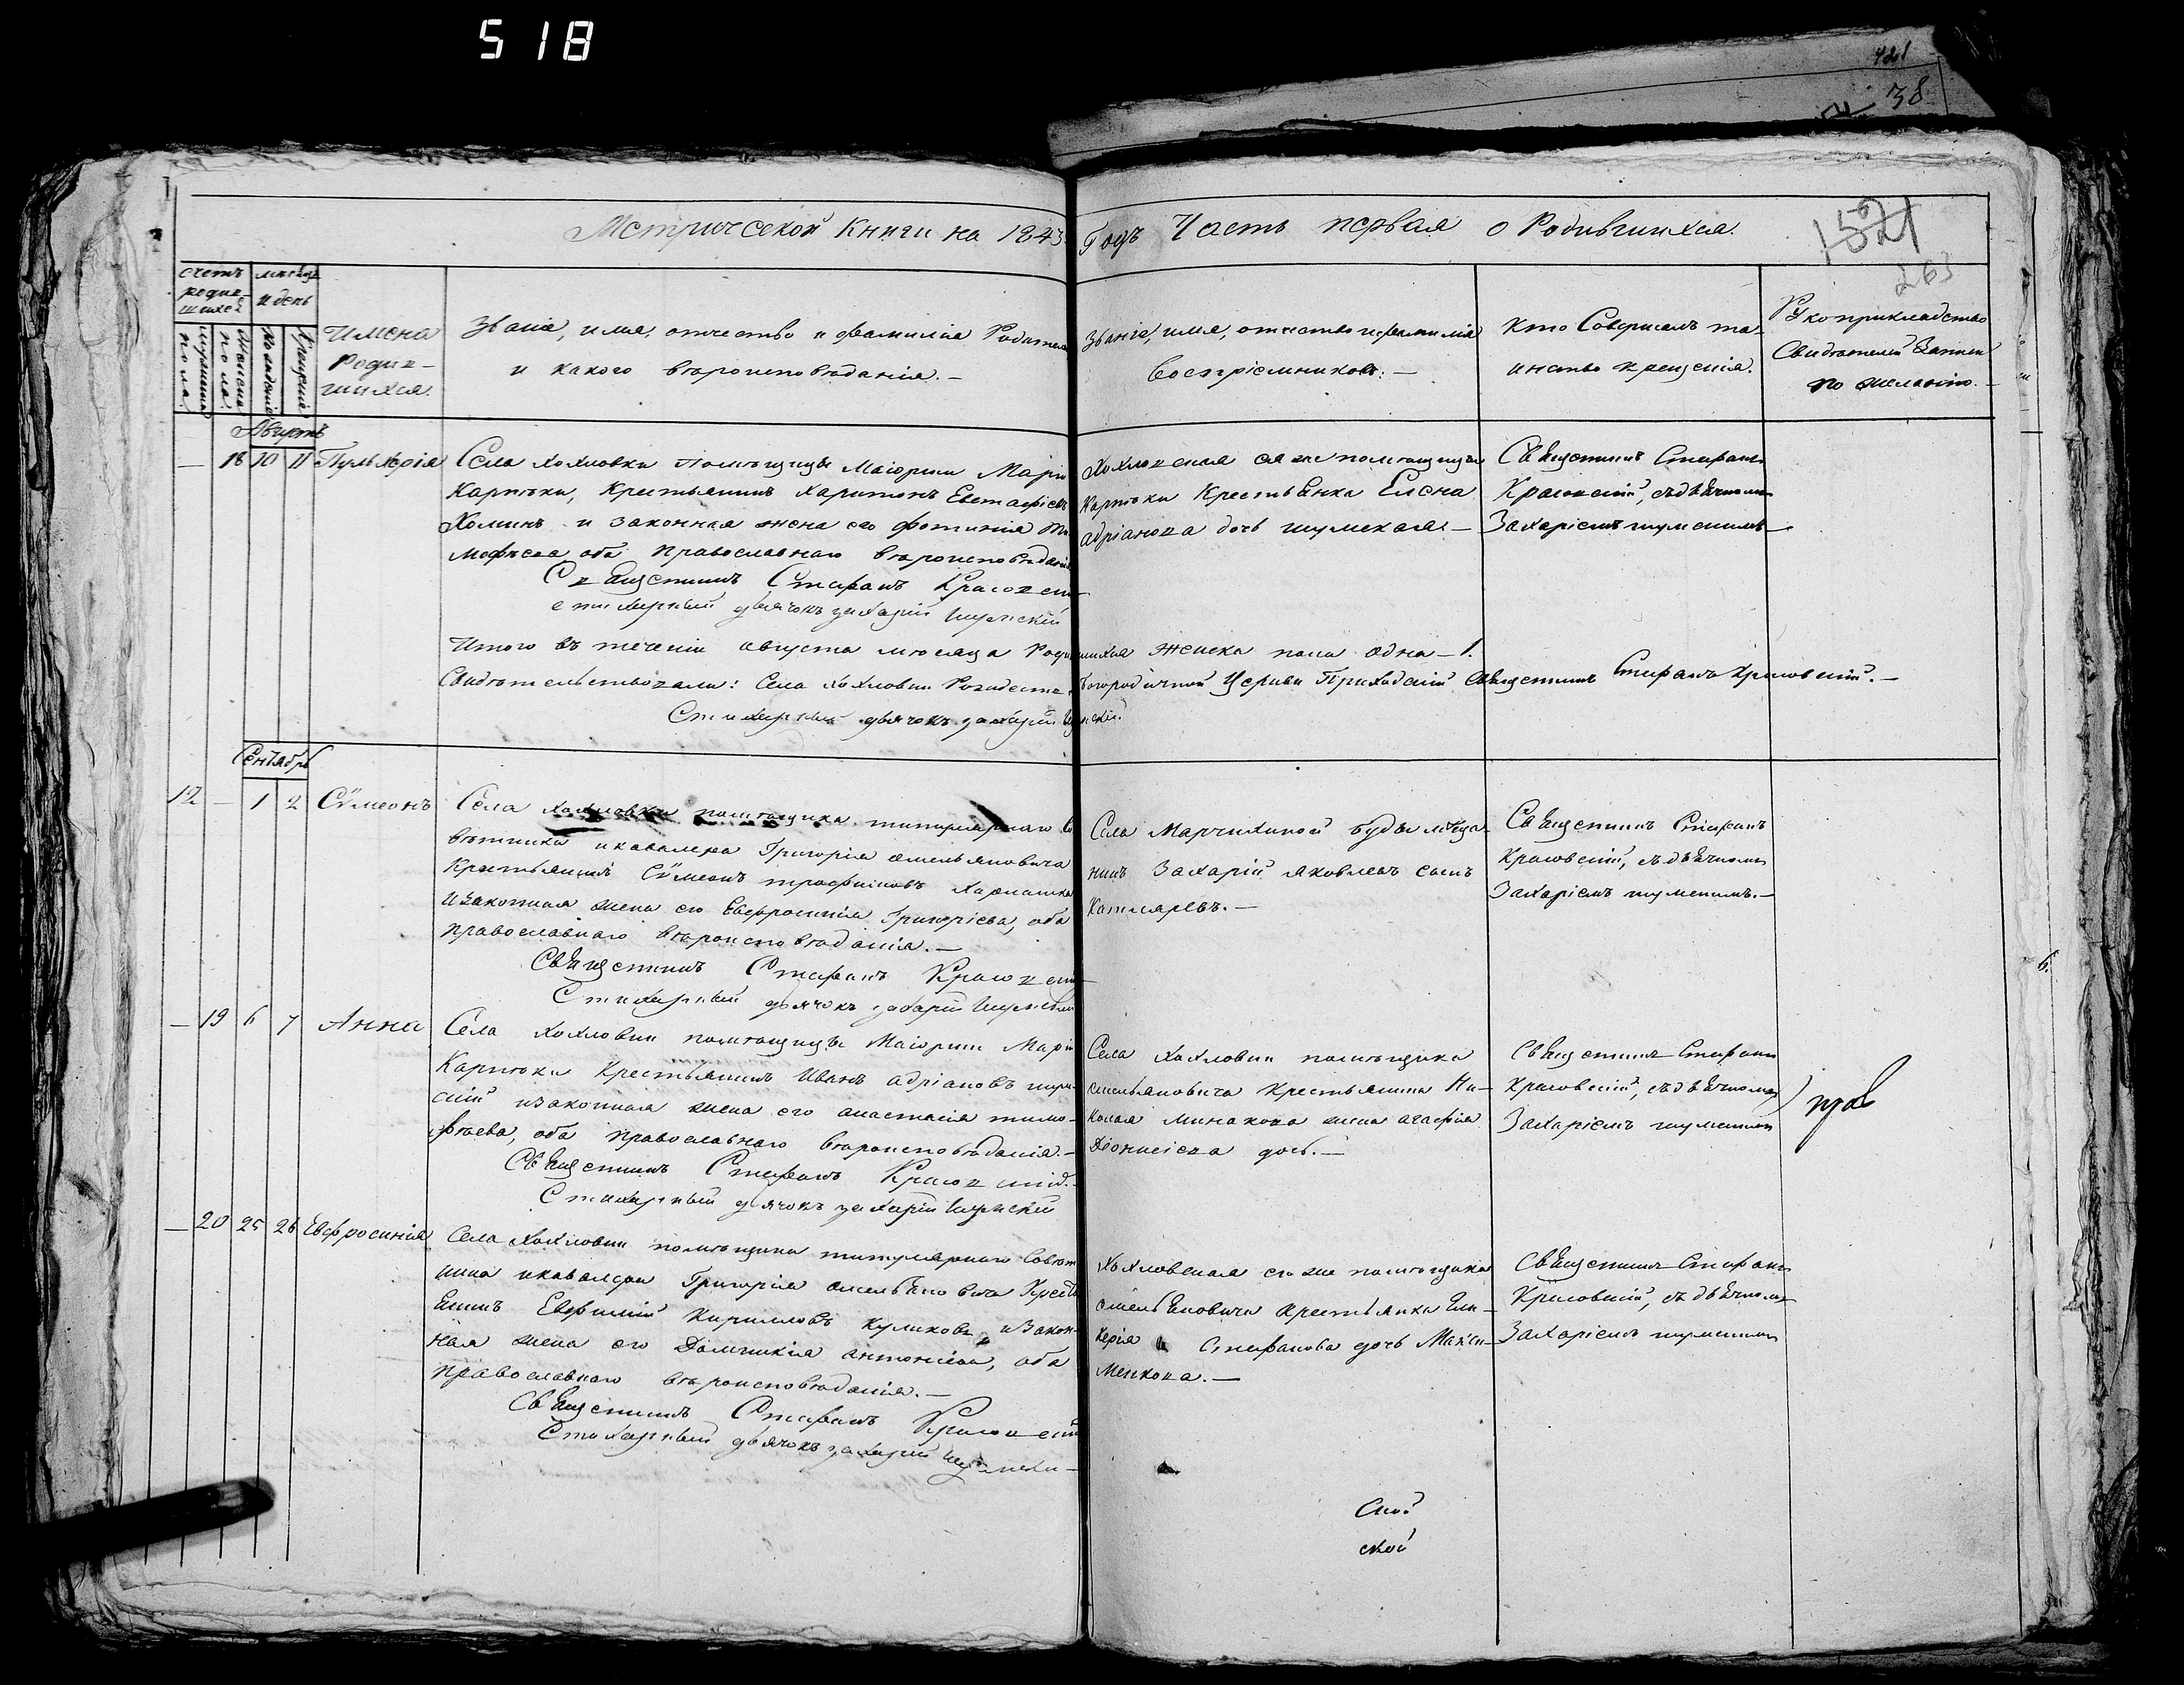 518
421
38
Метрической Книги на 1843.
Годъ Часть первая о Родившихся.
1521
263
счетъ родив-шихся
мѣсяцъ и день
мужеска пола.
женска пола.
рожденія
крещенія
Имена
Родив-
шихся.
Званіе, имя, отчество и фамилія Родителей
и какого вѣроисповѣданія. —
Званіе, имя, отчество и фамилія
Воспріемниковъ. —
Кто Совершалъ та-
инство крещенія.
Рукоприкладство
Свидѣтелей записи
по желанію. —
Августъ
— 18 10 11 Пульхерія
Села Хохловки Помѣщицы Маіорши Маріи
Карпѣки, Крестьянинъ Харитонъ Евстафіевъ
Хоминъ и законная жена его Фотинія Ти-
мофѣева оба православнаго вѣроисповѣданія
Священникъ Стефанъ Красовскій
стихарный дьячокъ захарій Шумскій
Хохловская ея же помѣщицы
Карпѣки Крестьянка Елена
Адріанова дочь шумская. —
Священникъ Стефанъ
Красовскій, съ дьячкомъ
Захаріемъ шумскимъ —
Итого въ теченіи августа мѣсяца Родившихся женска пола одна — 1.
Свидѣтельствовали: Села Хохловки Рождество Богородичной Церкви Приходскій Священникъ Стефанъ Красовскій. —
Стихарный дьячокъ захарій Шумскій.
Сентябрь
12 — 1 2 Сѵмеонъ
Села Хохловки помѣщика титулярнаго Со
вѣтника и кавалера Григорія Омельяновича
Крестьянинъ Сѵмеонъ трофимовъ
и законная жена его Евфросинія Григоріева, оба
православнаго вѣроисповѣданія. —
Священникъ Стефанъ Красовскій
Стихарный дьячокъ захарій Шумскій
Села Марчихиной буды мѣща-
нинъ Захарій Яковлевъ сынъ
Котляревъ. —
Священникъ Стефанъ
Красовскій, съ дьячкомъ
Захаріемъ шумскимъ. —
— 19 6 7 Анна
Села Хохловки помѣщицы Маіорши Маріи
Карпѣки Крестьянинъ Иванъ Адріановъ шум-
скій и законная жена его анастасія тимо-
фѣева, оба православнаго вѣроисповѣданія. —
Священникъ Стефанъ Красовскій.
Стихарный дьячокъ захарій Шумскій
Села Хохловки помѣщика
омельяновича крестьянина Ни-
колая Минакова жена агафія
Діонисіева дочь. —
Священникъ Стефанъ
Красовскій, съ дьячкомъ
Захаріемъ шумскимъ
— 20 25 26 Евфросинія
Села Хохловки помѣщика титулярнаго Совѣт
ника и кавалера Григорія Омельяновича Кресть
янинъ Евфимій Кирилловъ Куликовъ и Закон-
ная жена его Домникія антоніева, оба
православнаго вѣроисповѣданія. —
Священникъ Стефанъ Красовскій
Стихарный дьячокъ захарій Шумскій —
Хохловская его же помѣщика
омельяновича крестьянка Гли-
керія Стефанова дочь Макси-
менкова. —
Священникъ Стефанъ
Красовскій, съ дьячкомъ
Захаріемъ шумскимъ
ской